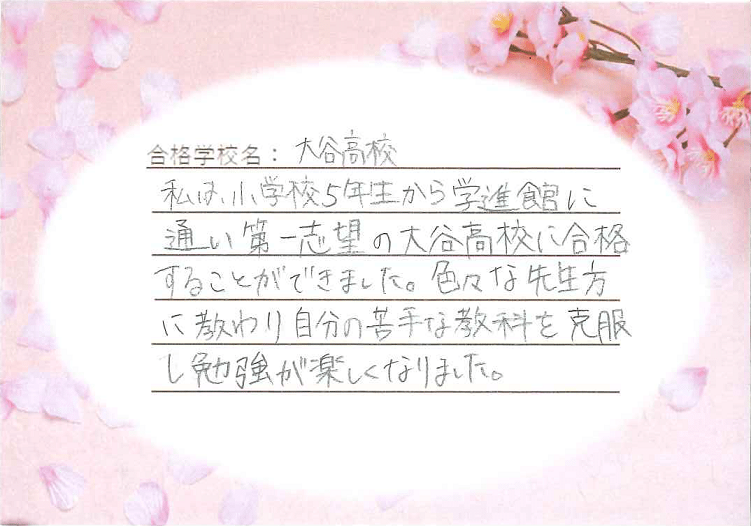 合格学校名：大谷高校
私は、小学校5年生から学進館に
通い第一志望の大谷高校に合格
することができました。色々な先生方
に教わり自分の苦手な教科を克服
し勉強が楽しくなりました。